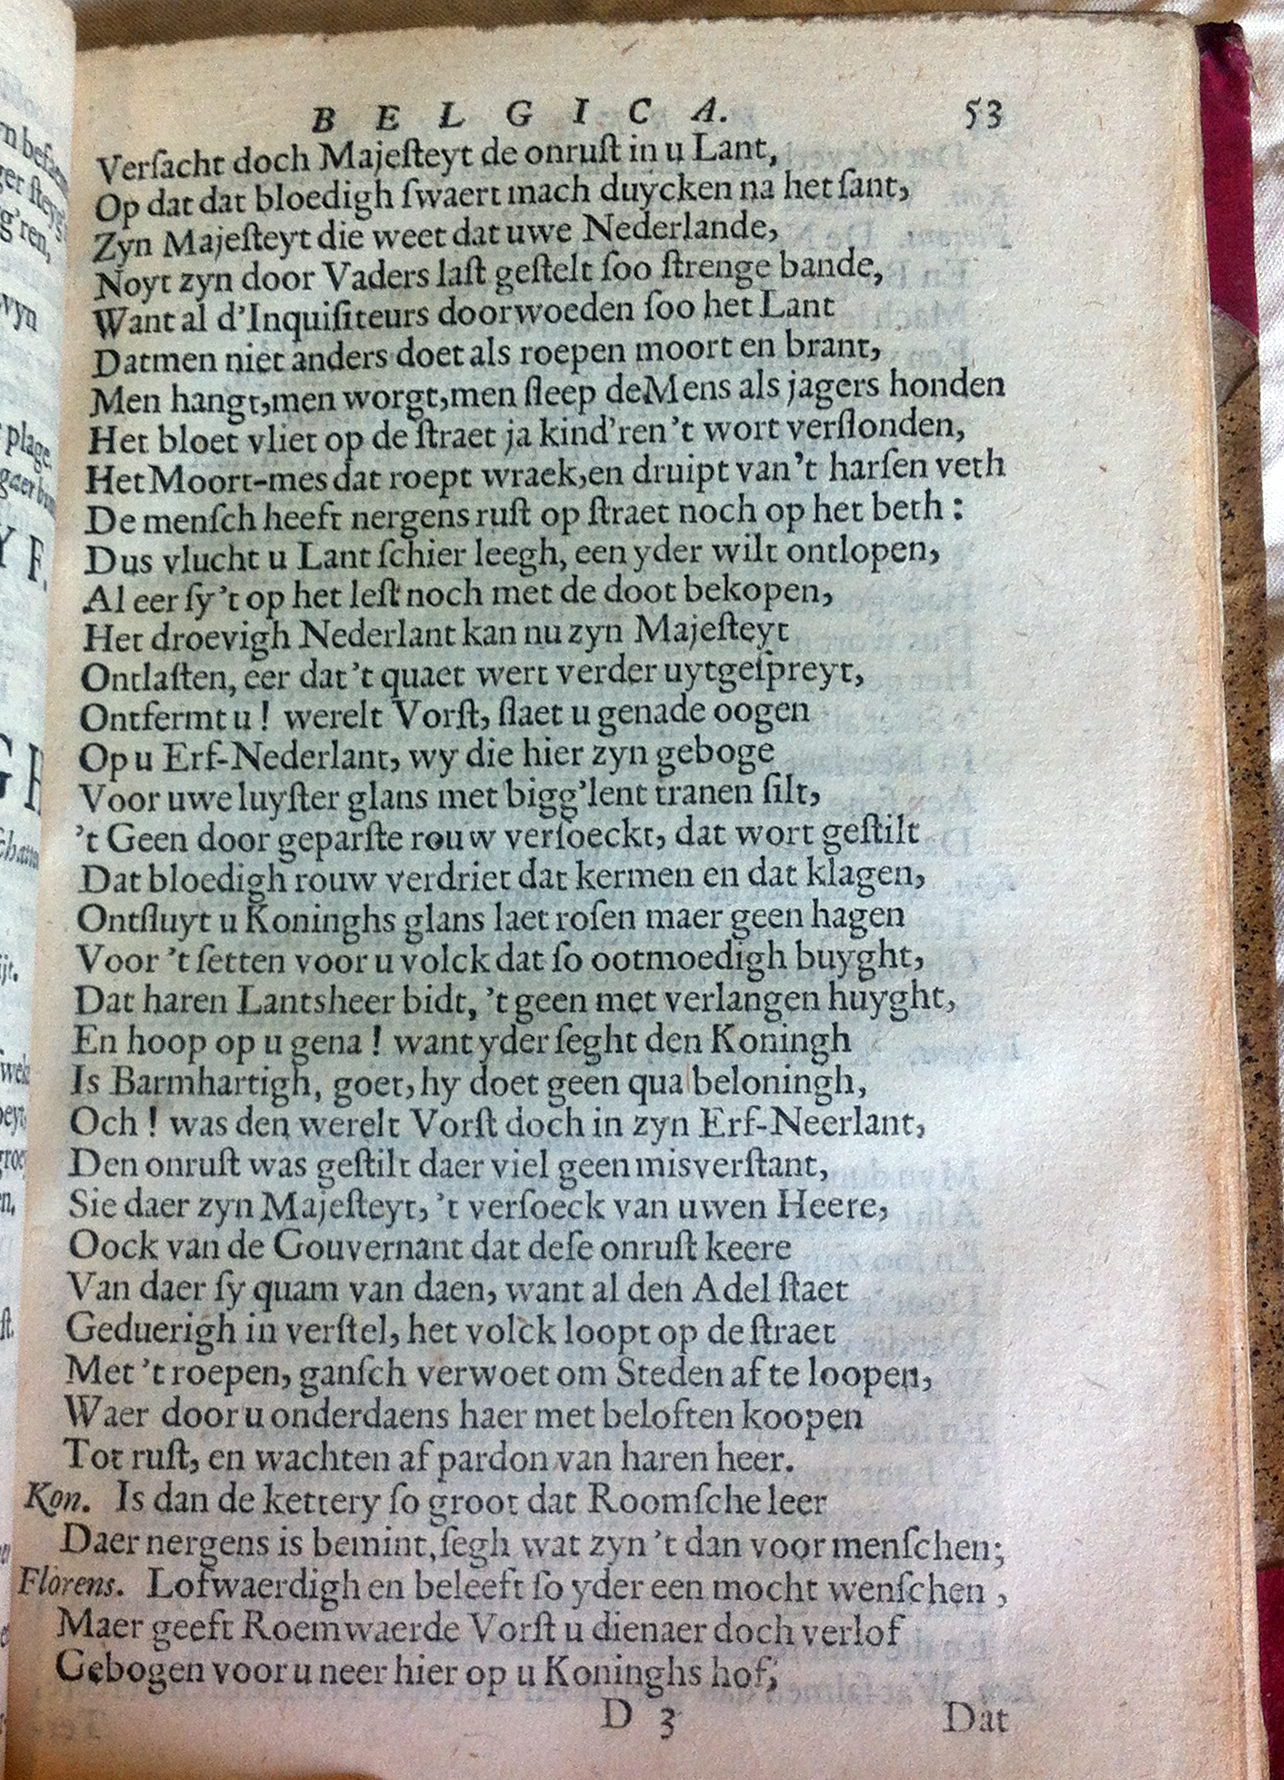 BELGICA. 53
Verſacht doch Majeſteyt de onruſt in u Lant,
Op dat dat bloedigh ſwaert mach duycken na het ſant,
Zyn Majeſteyt die weet dat uwe Nederlande,
Noyt zyn door Vaders laſt geſtelt ſoo ſtrenge bande,
Want al d'Inquiſiteurs doorwoeden ſoo het Lant
Datmen niet anders doet als roepen moort en brant,
Men hangt, men worgt, men ſleep de Mens als jagers honden
Het bloet vliet op de ſtraet ja kind'ren 't wort verſlonden,
Het Moort-mes dat roept wraek, en druipt van 't harſen veth
De menſch heeft nergens ruſt op ſtraet noch op het beth:
Dus vlucht u Lant ſchier leegh, een yder wilt ontlopen,
Al eer ſy 't op het leſt noch met de doot bekopen,
Het droevigh Nederlant kan nu zyn Majeſteyt
Ontlaſten, eer dat 't quaet wert verder uytgeſpreyt,
Ontfermt u! werelt Vorſt, ſlaet u genade oogen
Op u Erf-Nederlant, wy die hier zyn geboge
Voor uwe luyſter glans met bigg'lent tranen ſilt,
't Geen door geparſte rouw verſoeckt, dat wort geſtilt
Dat bloedigh rouw verdriet dat kermen en dat klagen,
Ontſluyt u Koninghs glans laet roſen maer geen hagen
Voor 't ſetten voor u volck dat ſo ootmoedigh buyght,
Dat haren Lantsheer bidt, 't geen met verlangen huyght,
En hoop op u gena! want yder ſeght den Koningh
Is Barmhartigh, goet, hy doet geen qua beloningh,
Och! was den werelt Vorſt doch in zyn Erf-Neerlant,
Den onruſt was geſtilt daer viel geen misverſtant,
Sie daer zyn Majeſteyt, 't verſoeck van uwen Heere,
Oock van de Gouvernant dat deſe onruſt keere
Van daer ſy quam van daen, want al den Adel ſtaet
Geduerigh in verſtel, het volck loopt op de ſtraet
Met 't roepen, ganſch verwoet om Steden af te loopen,
Waer door u onderdaens haer met beloften koopen
Tot ruſt, en wachten af pardon van haren heer.
Kon. Is dan de kettery ſo groot dat Roomſche leer
Daer nergens is bemint, ſegh wat zyn 't dan voor menſchen;
Florens. Lofwaerdigh en beleeft ſo yder een mocht wenſchen,
Maer geeft Roemwaerde Vorſt u dienaer doch verlof
Gebogen voor u neer hier op u Koninghs hof,
D 3 Dat